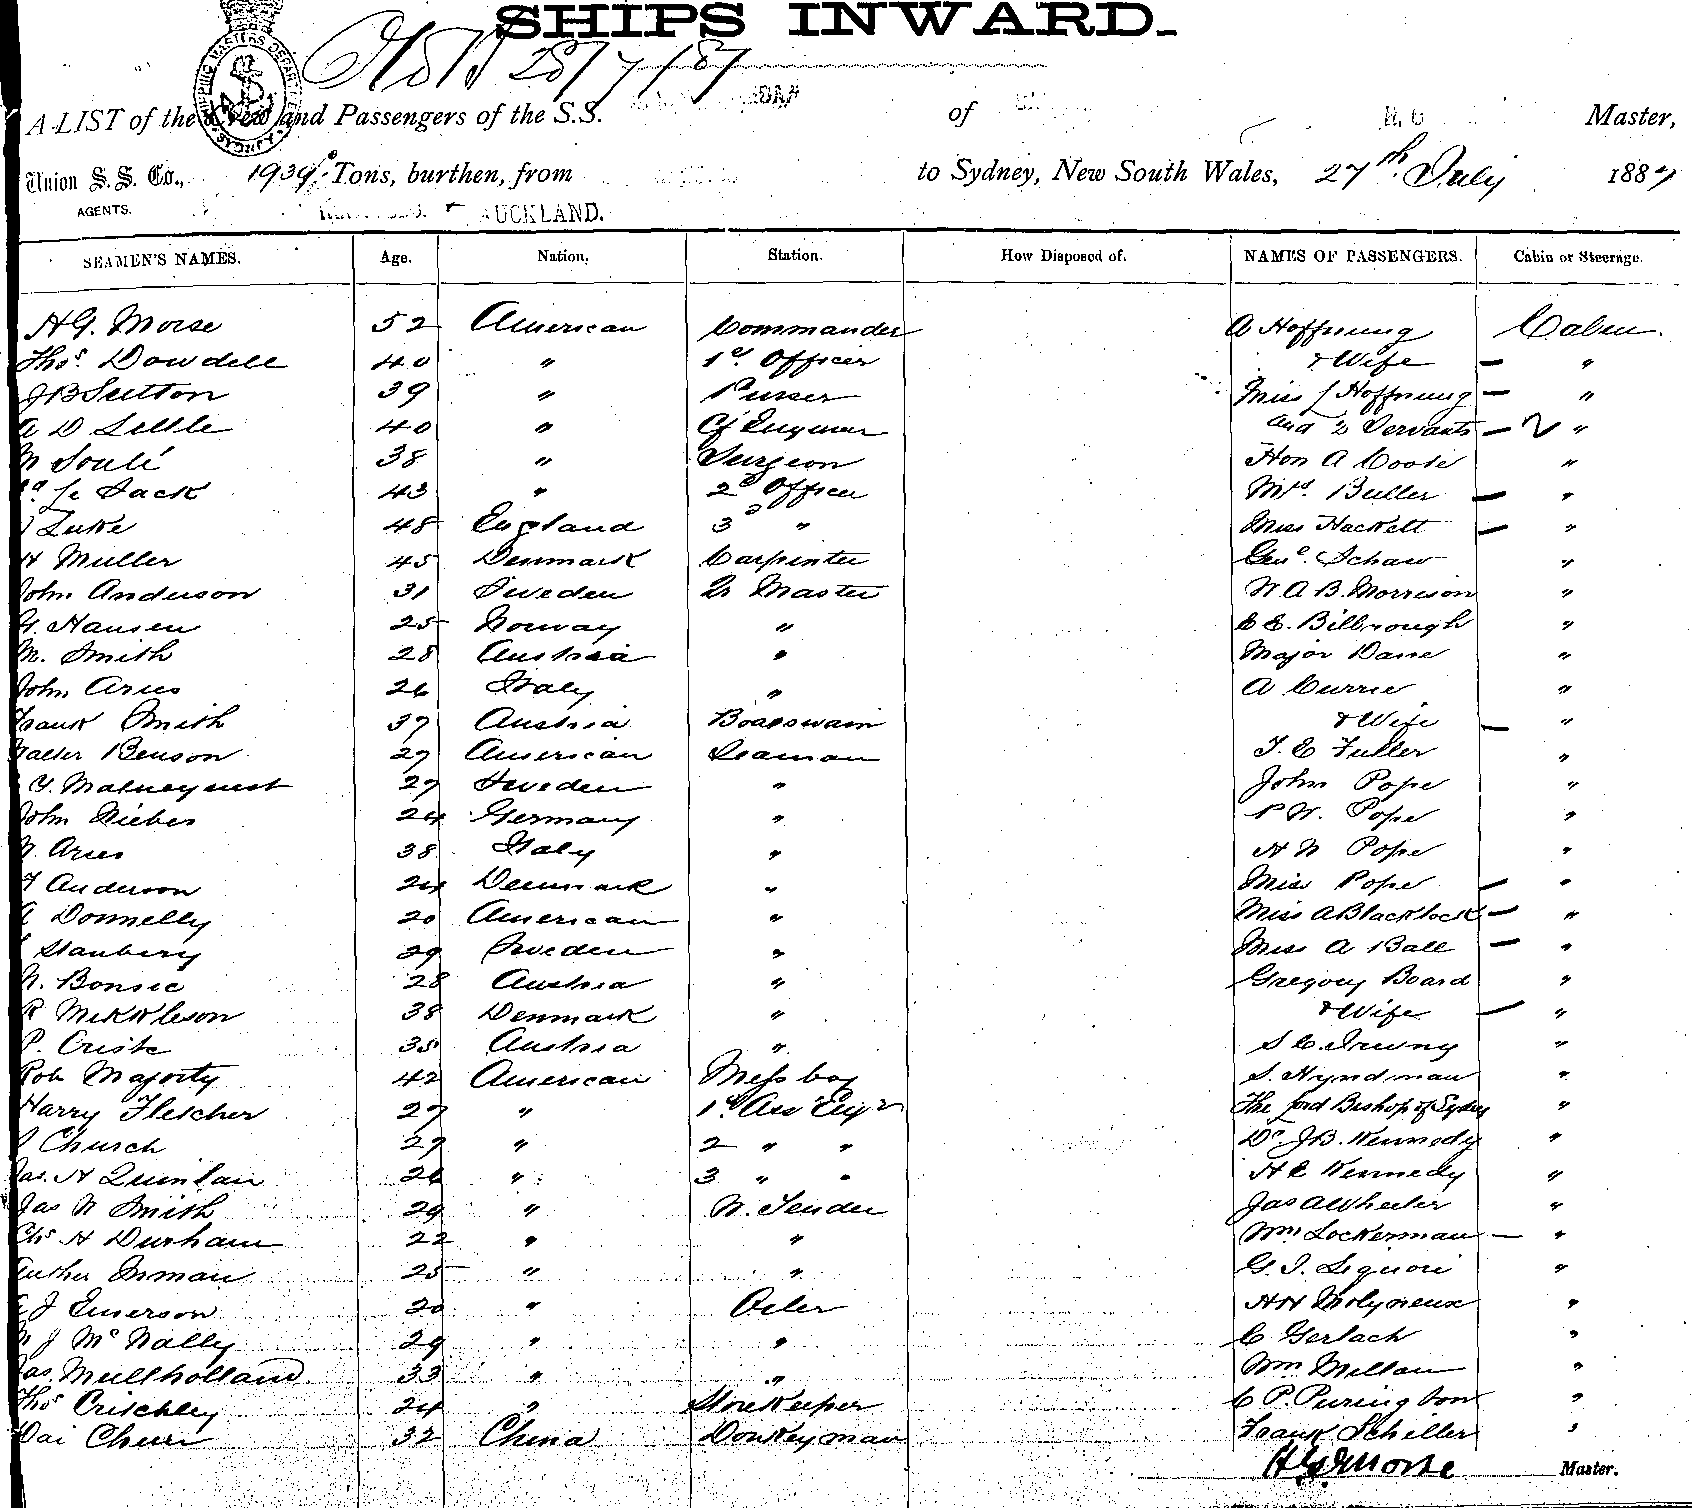 SHIPS INWARD.
28/7/87
A LIST of the Crew and Passengers of the S.S. of H. G Master,
Union S. S. Co., 1939 Tons, burthen, from to Sydney, New South Wales, 27th July 1887
AGENTS. AUCKLAND.
SEAMEN'S NAMES. Age. Nation. Station. How Disposed of. NAMES OF PASSENGERS. Cabin or Steerage.
HG. Morse 52 American Commander A Hoffnung Cabin.
Thos. Dowdell 40 " 1st Officer & Wife — "
JB Sutton 39 " Purser Miss Hoffnung — "
A D Little 40 " Cf Engineer and 2 Servants — 2 "
Soulé 38 " Surgeon Hon A Coote "
Jack 43 " 2d Officer Mrs. Buller — "
Luke 48 England 3d " Miss Hackett — "
H Muller 45 Denmark Carpenter Genl. Schaw "
John Anderson 31 Sweden Qr Master W. A. B. Morrison "
Hansen 25 Norway " Bilbrough "
M. Smith 28 Austria " Major Dane "
John Aries 26 Italy " A Currie "
Frank Smith 37 Austria Boatswain & Wife — "
Walter Benson 27 American Seaman T. E Fuller "
Malneyquist 27 Sweden " John Pope "
John Niebes 24 Germany " P W. Pope "
N. Aries 38 Italy " H N Pope "
Anderson 24 Denmark " Miss Pope — "
Donnelly 20 American " Miss A Blacklock — "
Stanbery 29 Sweden " Miss A Ball — "
N. Bonsic 28 Austria " Gregory Board "
R Mekkleson 38 Denmark " & Wife — "
P. Criste 35 Austria " S C. Irving "
Rob Majorty 42 American Mess boy S. Hyndman "
Harry Fletcher 27 " 1st Ass Engr The Lord Bishop of Sydney "
Church 27 " 2 " " Dr JB. Kennedy "
Jas. H Quinlan 26 " 3 " " H C Kennedy "
Jas N Smith 29 " W. Tender Jas A Wheeler "
Chs H Durham 22 " " Wm Lockerman — "
Luther Inman 25 " " G. I. Liguori "
J Emerson 20 " Oiler HH Molyneux "
J McNally 29 " " C Gerlach "
Jas. Mullholland 33 " " Wm Millan "
Thos Critchley 24 " Storekeeper C P. Purington "
Wai Chun 32 China Donkeyman Frank Schiller "
HG Morse Master.